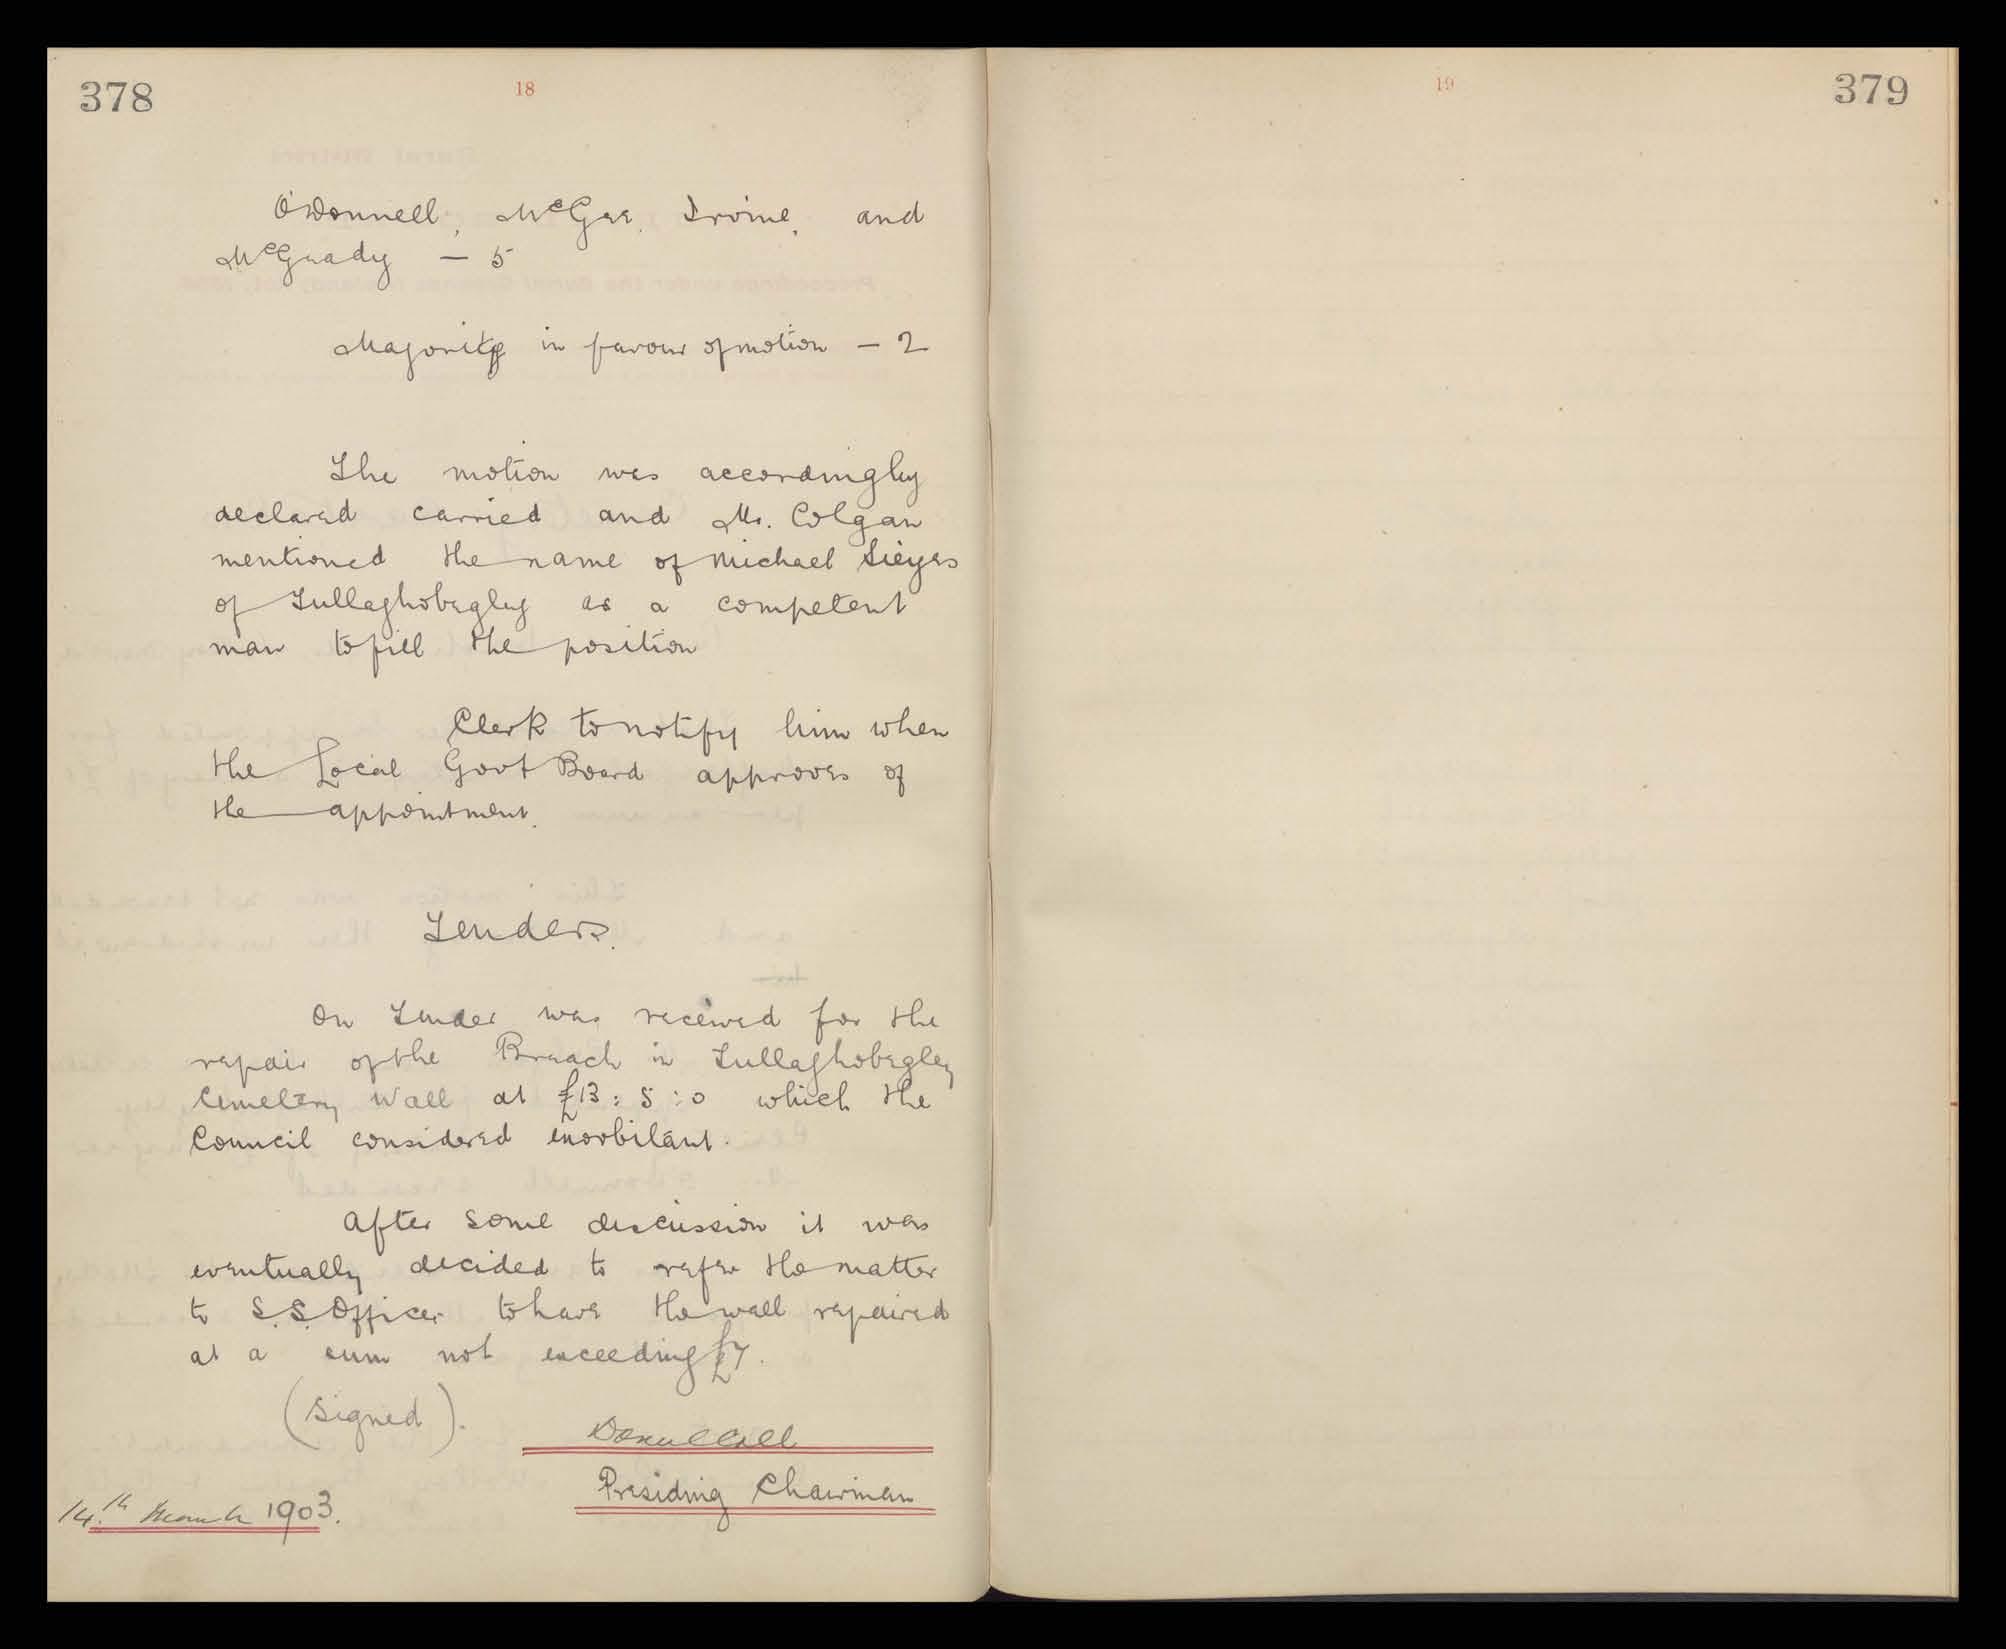 378
18
O'Donnell, McGee, Irvine, and
McGuady — 5
Majority in favour of motion — 2
The motion was accordingly
declared carried and Mr. Colgan
mentioned the name of Michael
of Tullaghobegley as a competent
man to fill the position
Clerk to notify him when
the Local Govt Board approves of
the appointment.
Tenders.
On Tender was received for the
repair of the Breach in Tullaghobegley
Cemetery Wall at £13 : 5 : 0 which the
Council considered exorbitant.
After some discussion it was
eventually decided to refer the matter
to S.S. Officer to have the wall repaired
at a sum not exceeding £7.
(Signed).
Presiding Chairman
14th March 1903.
19
379